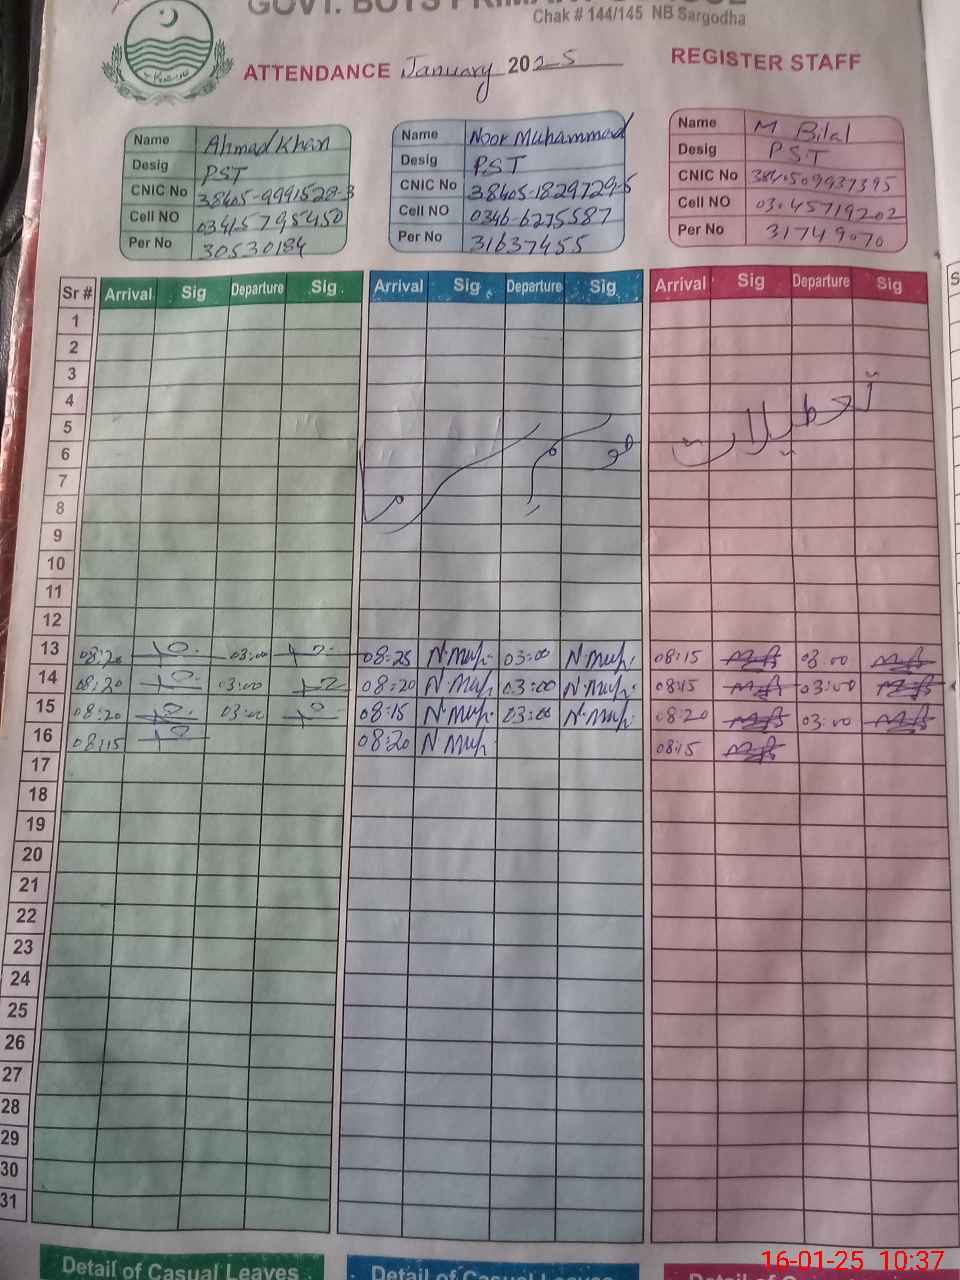 GOVT. BOYS PRIMARY SCHOOL
Chak # 144/145 NB Sargodha
ATTENDANCE January 2025 REGISTER STAFF
Name Ahmad Khan
Desig PST
CNIC No 38405-9991528-3
Cell NO 03415795450
Per No 30530184
Name Noor Muhammad
Desig PST
CNIC No 38405-1829729-5
Cell NO 0346-6275587
Per No 31637455
Name M Bilal
Desig PST
CNIC No 3840509937395
Cell NO 03045719202
Per No 31749070
Sr # Arrival Sig Departure Sig Arrival Sig Departure Sig Arrival Sig Departure Sig
1
2
3
4
5
موسم سرما تعطیلات
6
7
8
9
10
11
12
13 08:20 03:00 08:25 N.Muh. 03:00 N.Muh. 08:15 03:00
14 08:20 03:00 08:20 N.Muh. 03:00 N.Muh. 08:15 03:00
15 08:20 03:00 08:15 N.Muh. 03:00 N.Muh. 08:20 03:00
16 08:15 08:20 N.Muh. 08:15
17
18
19
20
21
22
23
24
25
26
27
28
29
30
31
Detail of Casual Leaves Detail of Casual Leaves
16-01-25 10:37